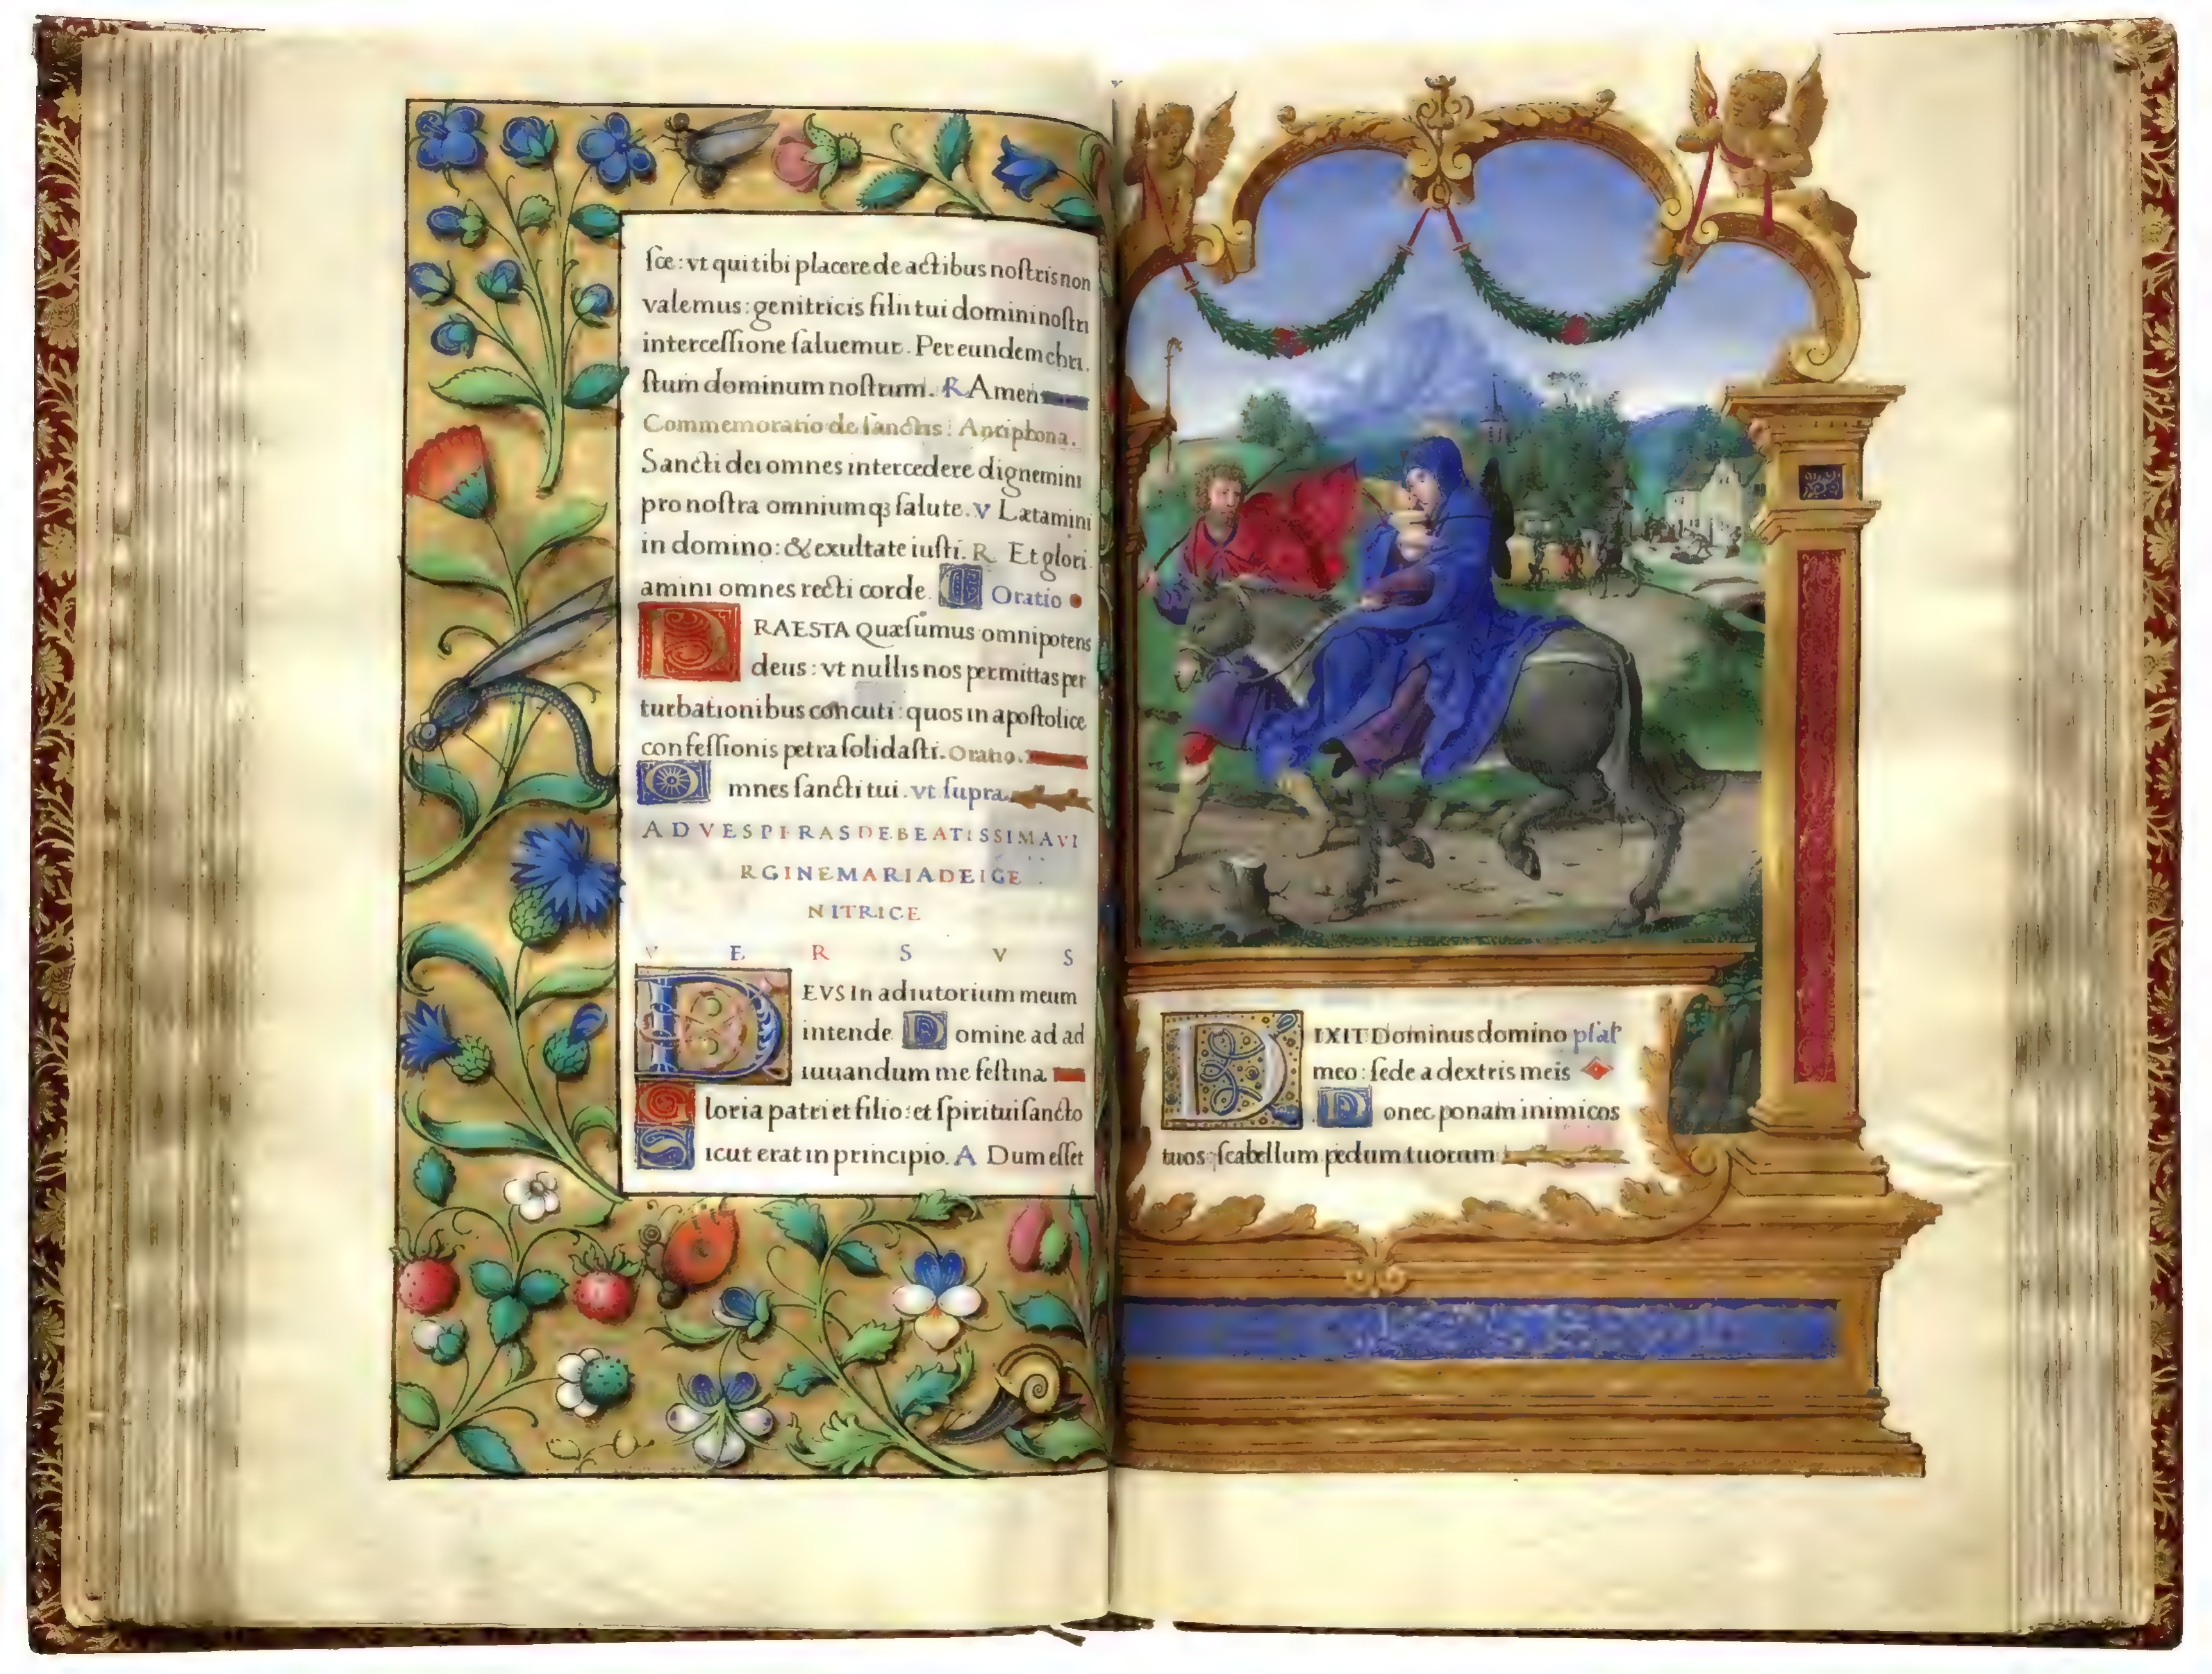 sce : vt qui tibi placere de actibus nostris non
valemus : genitricis filii tui domini nostri
intercessione saluemur . Per eundem chri.
stum dominum nostrum . R Amen
Commemoratio de sanctis : Antiphona .
Sancti dei omnes intercedere dignemini
pro nostra omniumqȝ salute . v Lætamini
in domino : & exultate iusti . R Et glori.
amini omnes recti corde . Oratio
PRAESTA Quæsumus omnipotens
deus : vt nullis nos permittas per
turbationibus concuti : quos in apostolice
confessionis petra solidasti . Oratio .
Omnes sancti tui . vt supra .
AD VESPERAS DE BEATISSIMA VI
RGINE MARIA DEI GE
NITRICE
VERSVS
DEVS In adiutorium meum
intende Domine ad ad
iuuandum me festina
Gloria patri et filio : et spiritui sancto
Sicut erat in principio . A Dum esset
DIXIT Dominus domino psal
meo : sede a dextris meis
Donec ponam inimicos
tuos : scabellum pedum tuorum